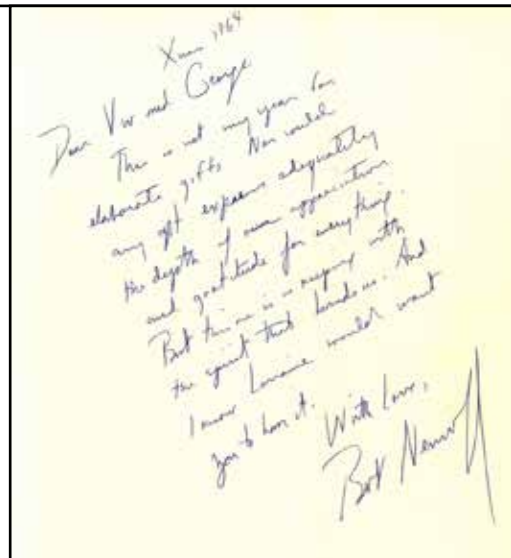 Xmas 1964
Dear Viv and George
This is not my year for
elaborate gifts. Nor could
any gift express adequately
the depth of our appreciation
and gratitude for everything.
But this one is in keeping with
the spirit that binds us. And
I know Lorraine would want
you to have it.
With Love,
Bob Nemiroff